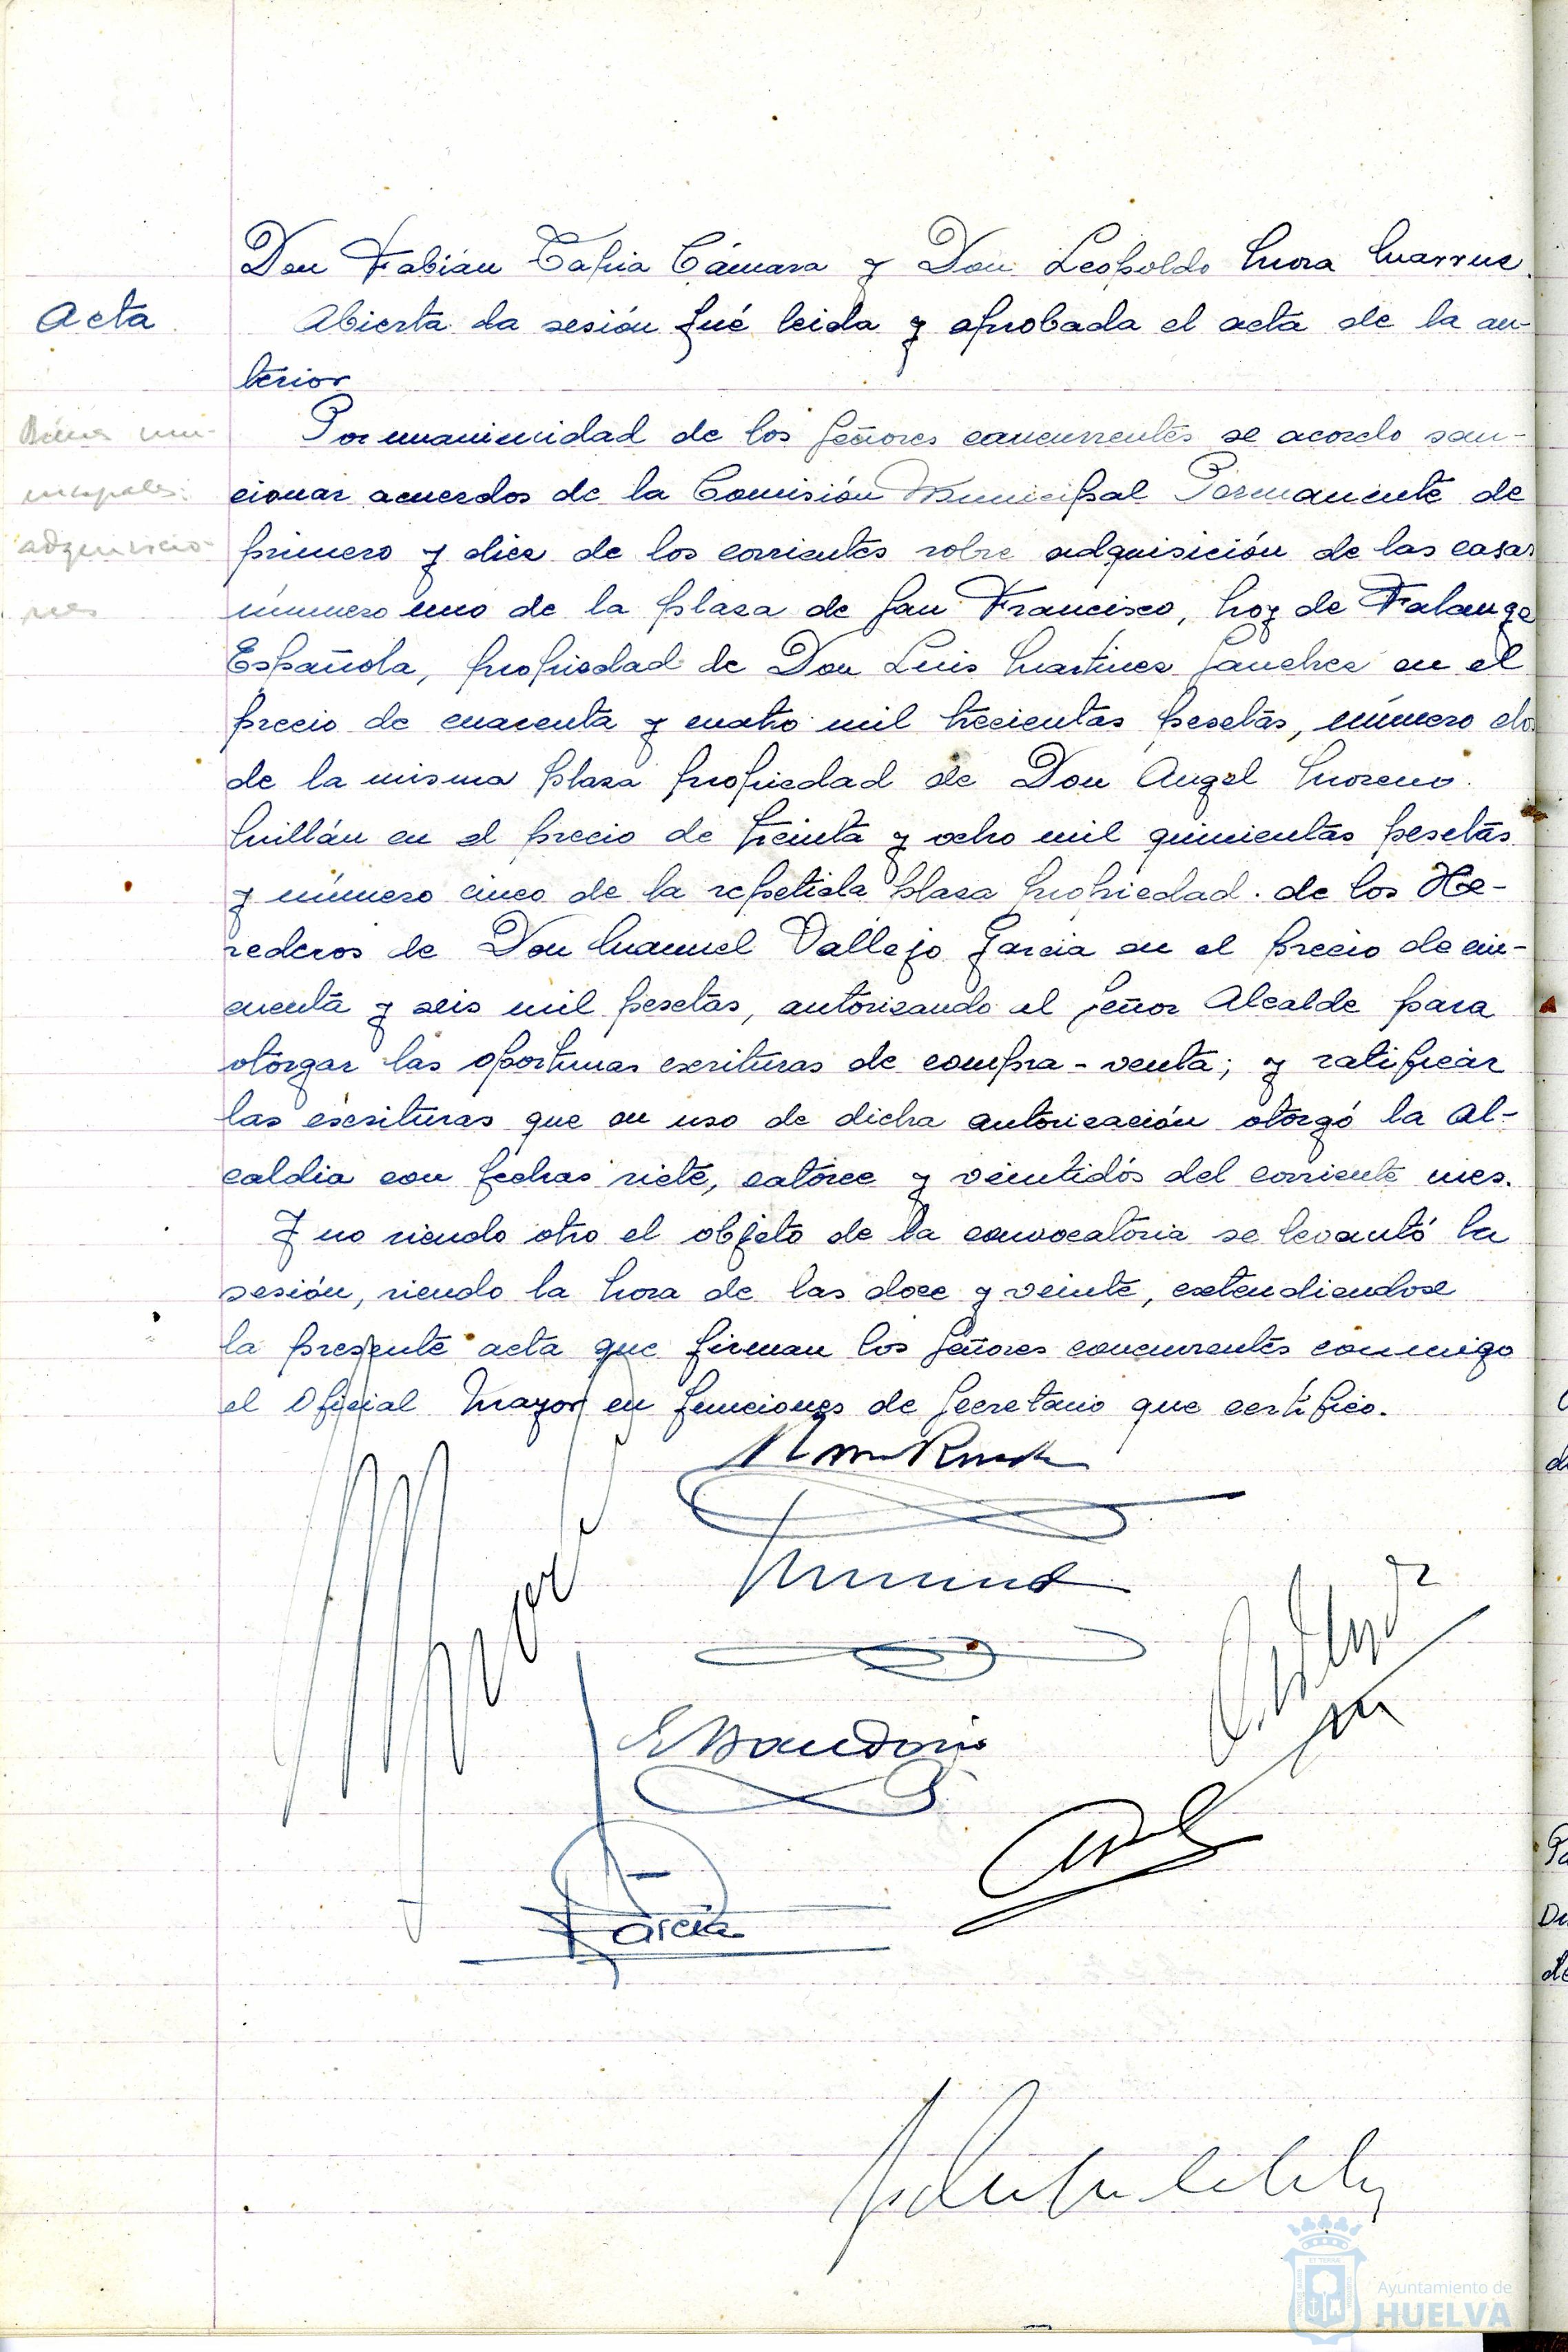 Don Fabián Tapia Cámara y Don Leopoldo Mora
Acta
Abierta la sesión fué leida y aprobada el acta de la an-
terior
Bienes mu-
nicipales:
adquisicio-
nes
Por unanimidad de los Señores concurrentes se acordo san-
cionar acuerdos de la Comisión Municipal Permanente de
primero y diez de los corrientes sobre adquisición de las casas
número uno de la plaza de San Francisco, hoy de Falange
Española, propiedad de Don Luis Martinez Sanchez en el
precio de cuarenta y cuatro mil trecientas pesetas, número dos
de la misma plaza propiedad de Don Angel Moreno
Millán en el precio de treinta y ocho mil quinientas pesetas
y número cinco de la repetida plaza propiedad de los He-
rederos de Don Manuel Vallejo Garcia en el precio de cin-
cuenta y seis mil pesetas, autorizando al Señor Alcalde para
otorgar las oportunas escrituras de compra-venta; y ratificar
las escrituras que en uso de dicha autorización otorgó la Al-
caldia con fechas siete, catorce y veintidós del corriente mes.
Y no siendo otro el objeto de la convocatoria se levantó la
sesión, siendo la hora de las doce y veinte, extendiendose
la presente acta que firman los Señores concurrentes conmigo
el Oficial Mayor en funciones de Secretario que certifico.
Garcia
Ayuntamiento de
HUELVA